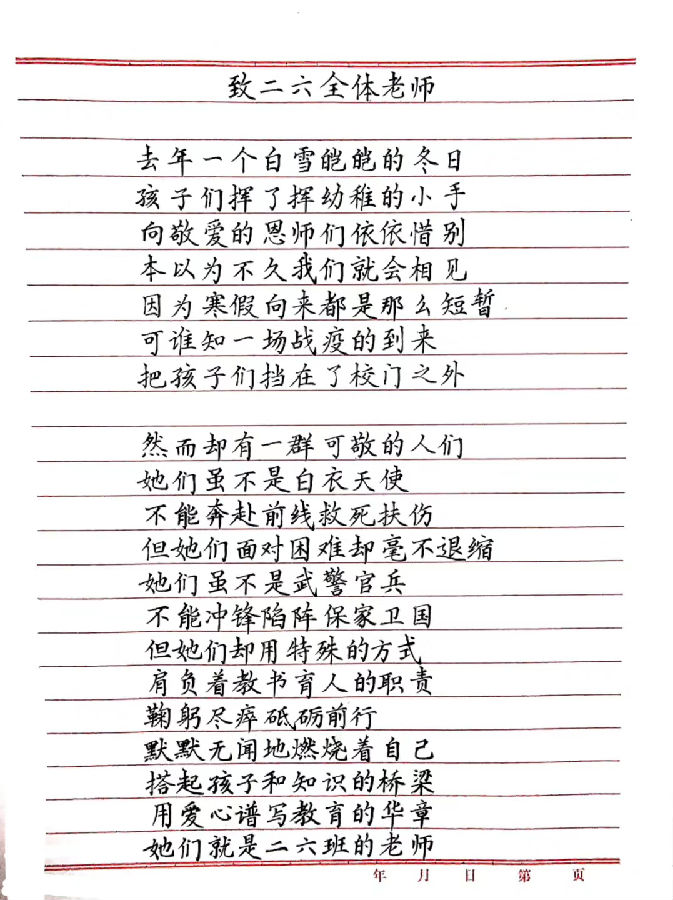 致二六全体老师
去年一个白雪皑皑的冬日
孩子们挥了挥幼稚的小手
向敬爱的恩师们依依惜别
本以为不久我们就会相见
因为寒假向来都是那么短暂
可谁知一场战疫的到来
把孩子们挡在了校门之外
然而却有一群可敬的人们
她们虽不是白衣天使
不能奔赴前线救死扶伤
但她们面对困难却毫不退缩
她们虽不是武警官兵
不能冲锋陷阵保家卫国
但她们却用特殊的方式
肩负着教书育人的职责
鞠躬尽瘁砥砺前行
默默无闻地燃烧着自己
搭起孩子和知识的桥梁
用爱心谱写教育的华章
她们就是二六班的老师
年 月 日 第 页